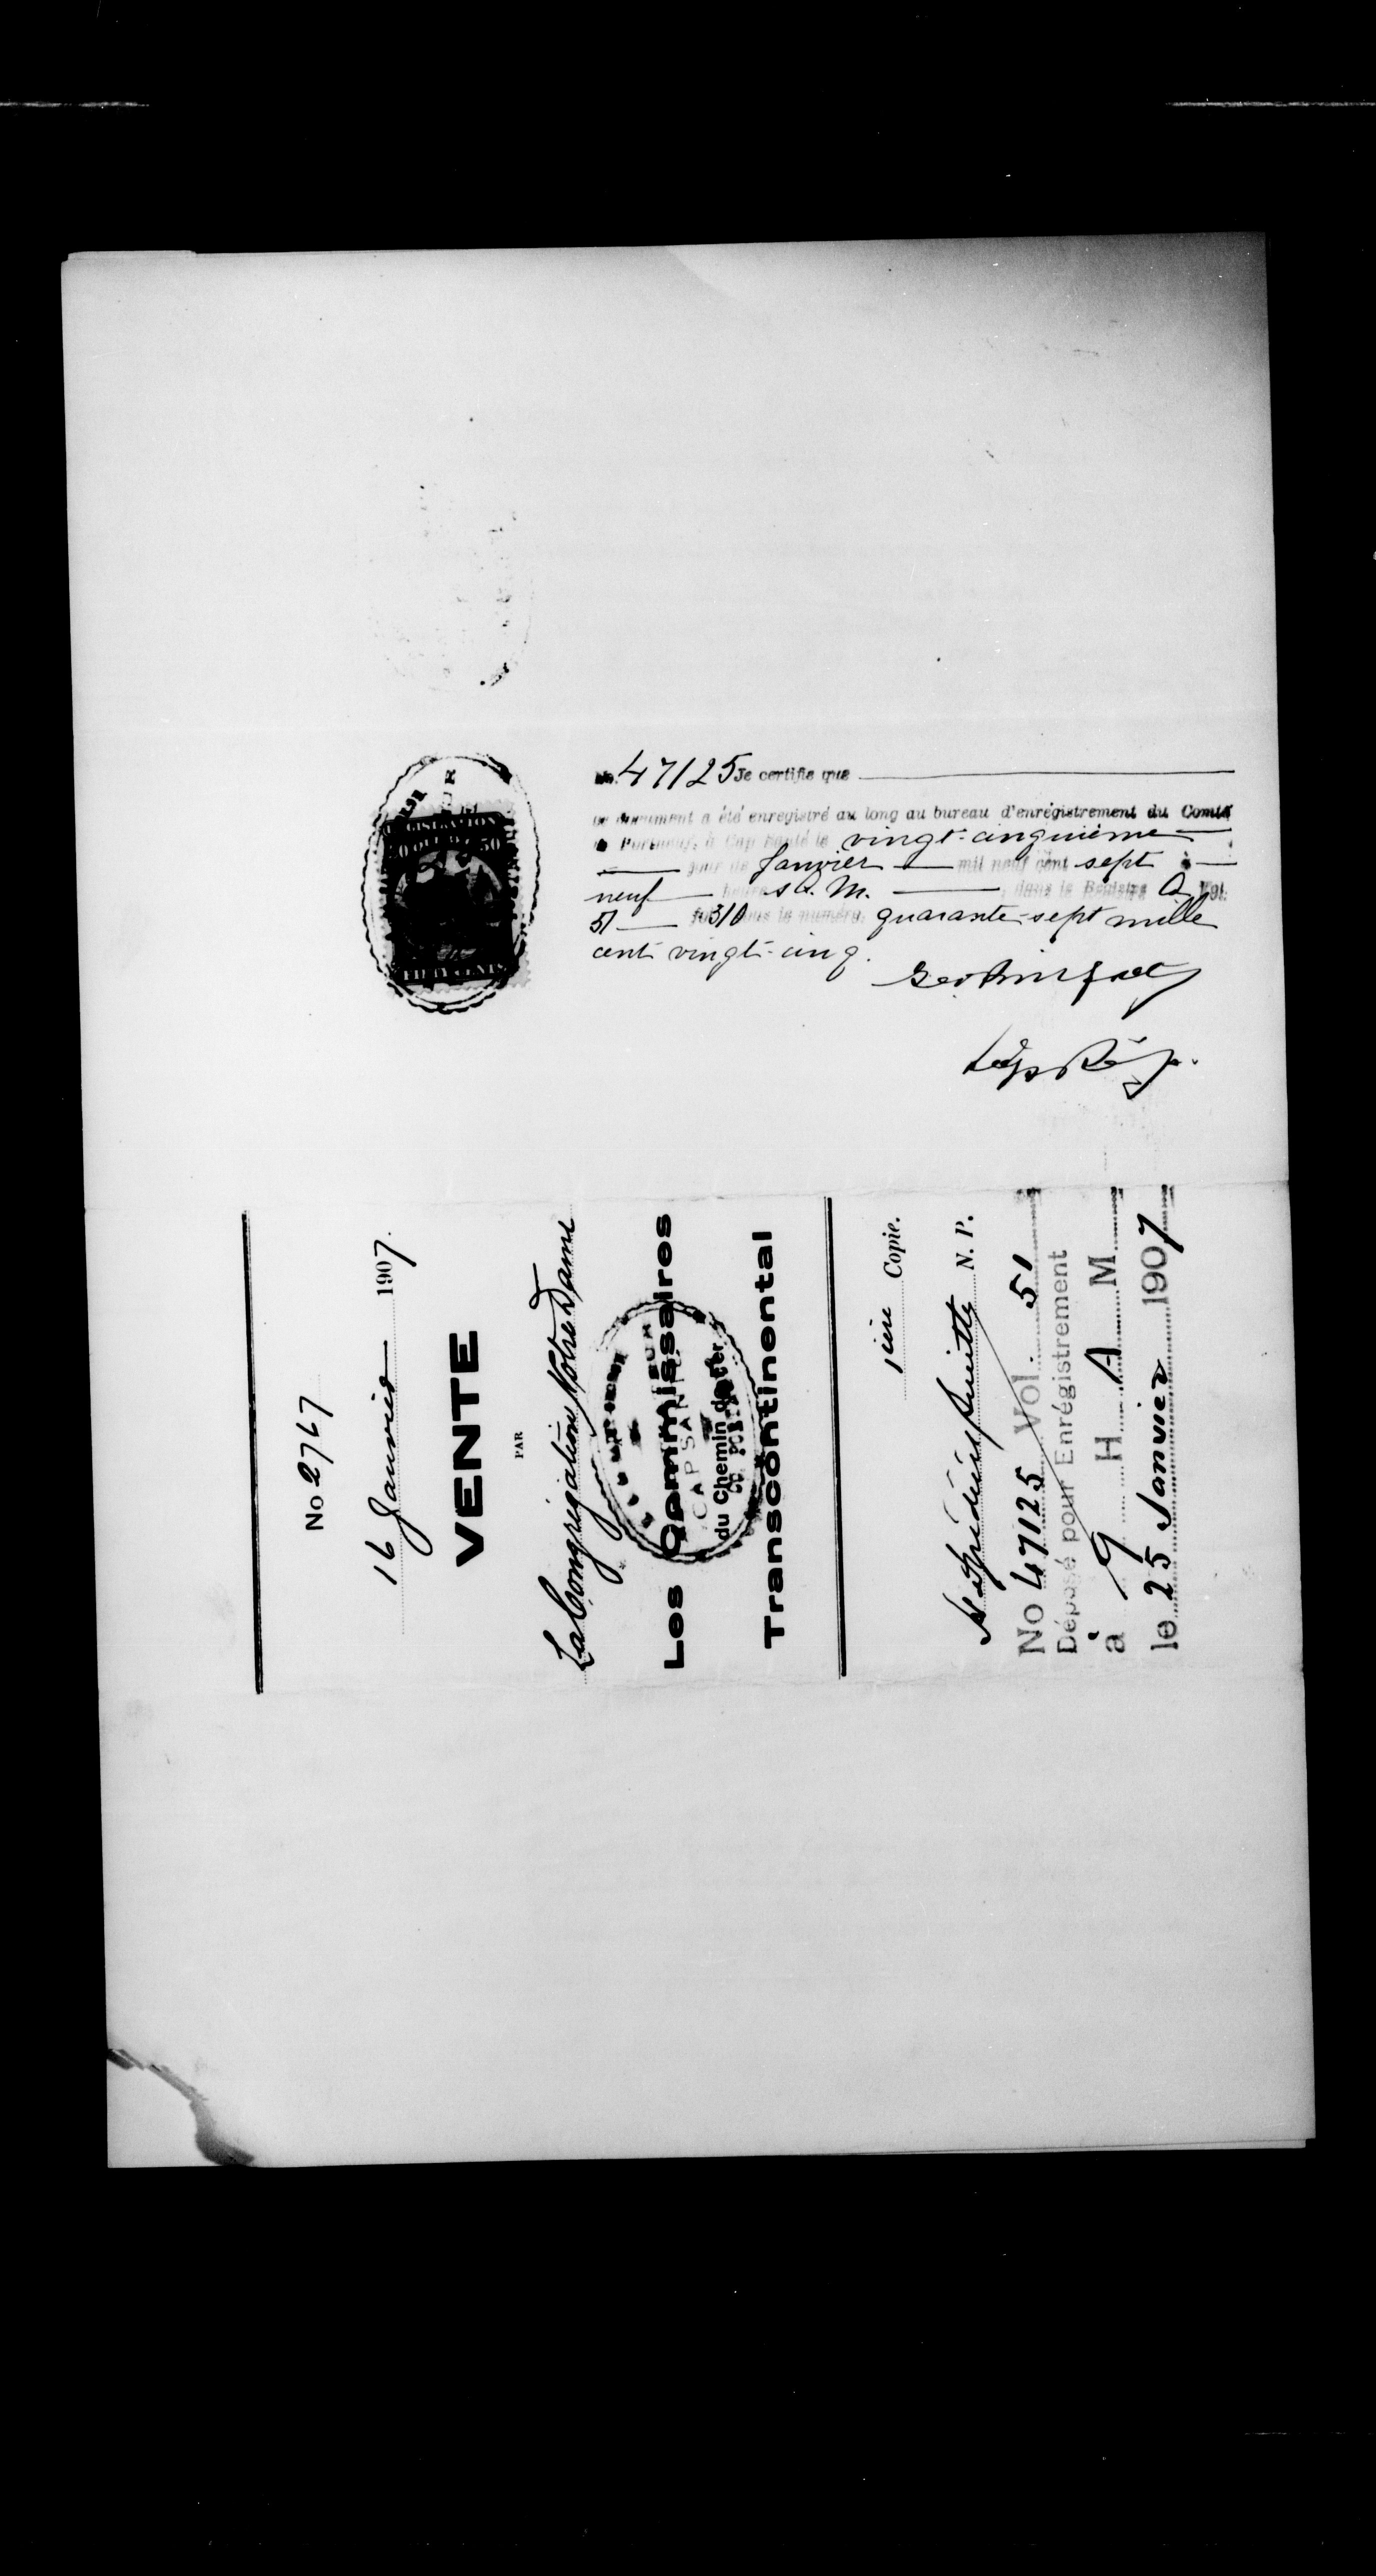 No. 47125 Je certifie que
ce document a été enregistré au long au bureau d'enrégistrement du Comté
de Portneuf, à Cap Santé le vingt-cinquième
jour de Janvier mil neuf cent sept à
neuf heures A. M. dans le Registre A Vol.
51 fol 310 sous le numéro quarante-sept mille
cent vingt-cinq.
Dép Rég.
FIFTY CENTS
No 2767
16 Janvier 1907.
VENTE
PAR
La Congrégation Notre Dame
Les Commissaires
CAP SANTÉ
du Chemin de fer
Transcontinental
1ière Copie.
N. P.
No 47125 Vol. 51
Déposé pour Enrégistrement
à 9 H A M
le 25 Janvier 1907